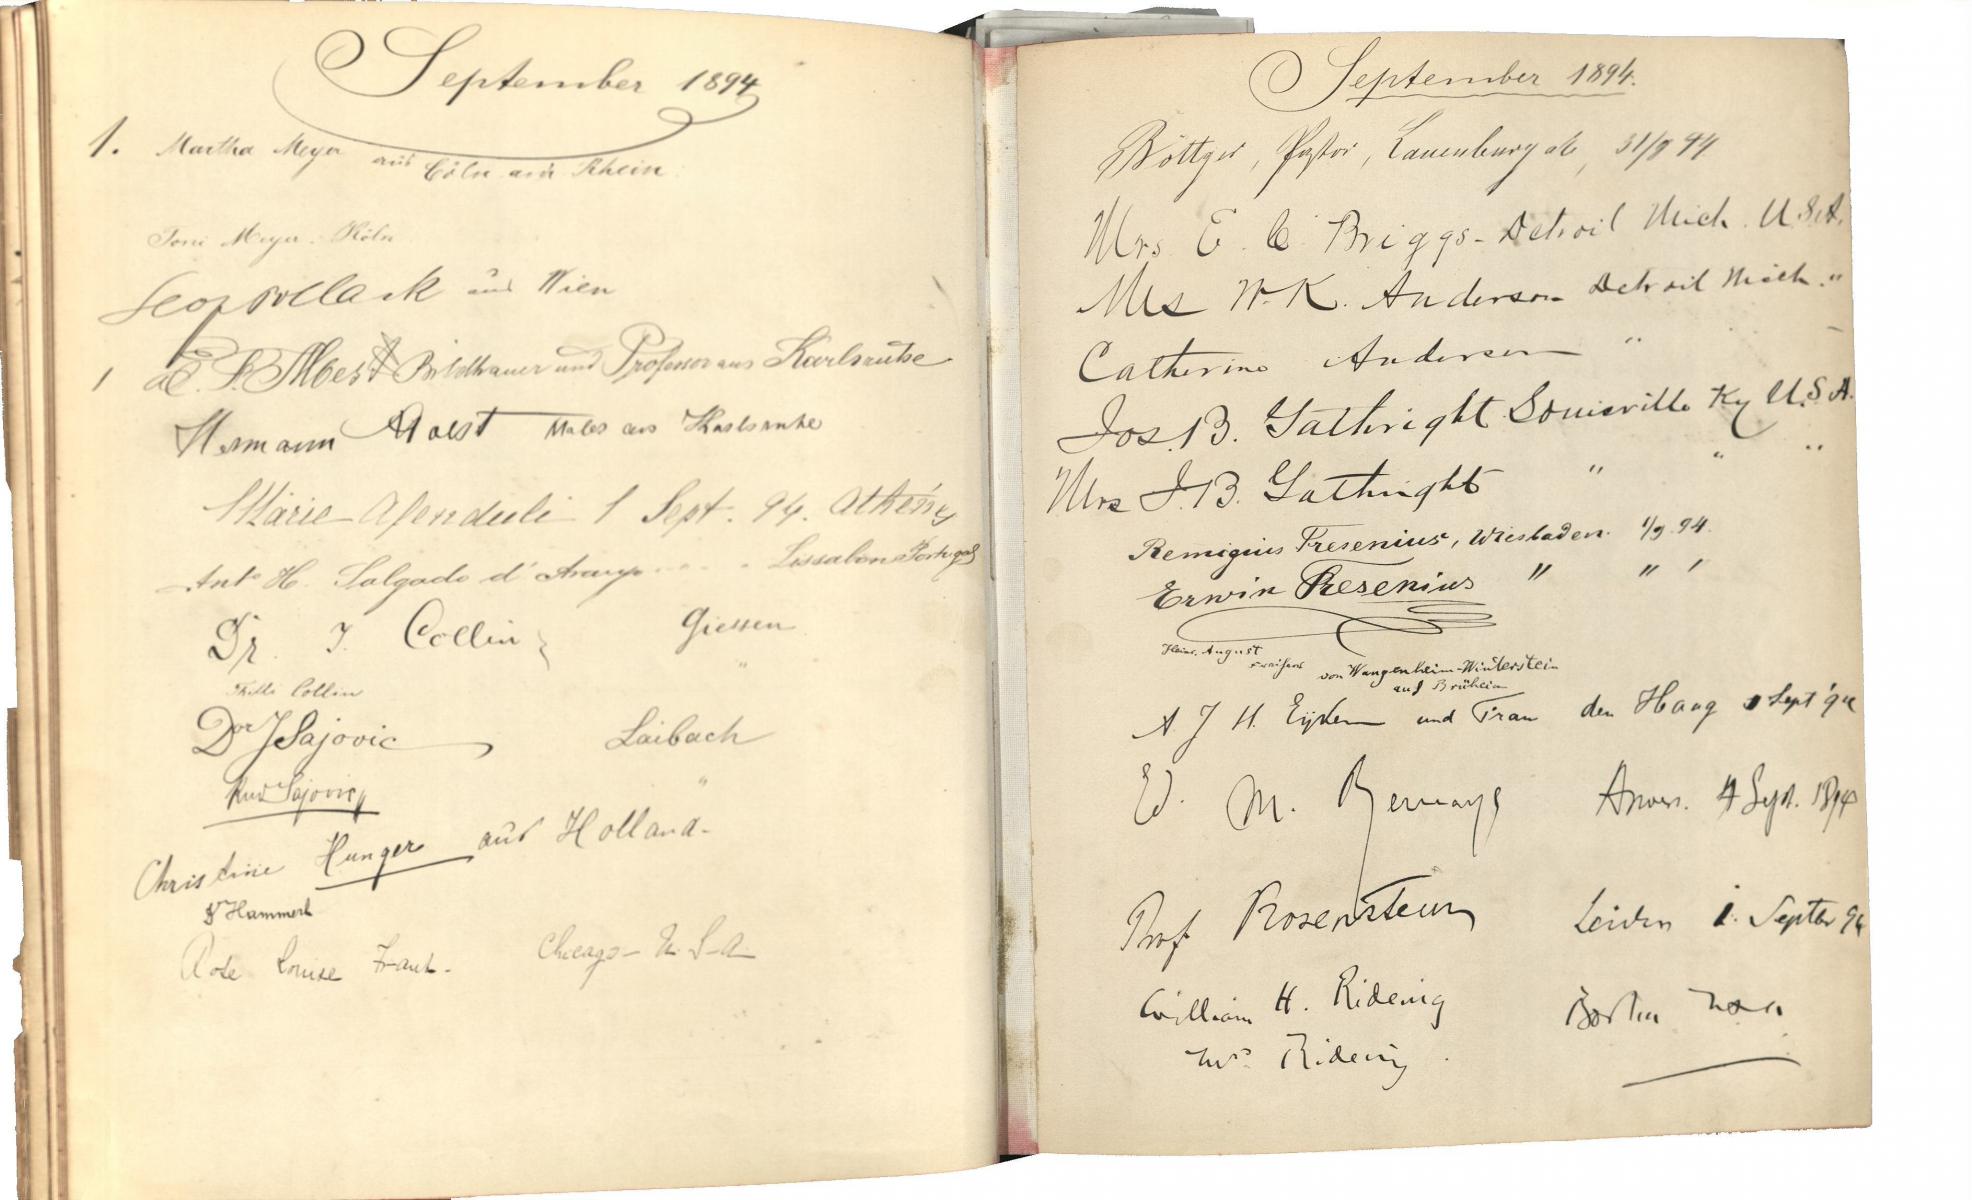 September 1894
1. Martha Meyer aus Cöln am Rhein.
Toni Meyer. Köln
Leop Pollack aus Wien
1 Bildhauer und Professor aus Karlsruhe
Hermann Maler aus Karlsruhe
Marie Afenduli 1 Sept. 94. Athény
Anto H. Salgado d'Araujo Lissabon Portugal
Dr. J. Collin Giessen
Tilli Collin "
Dor J Sajovic Laibach
Sajovic "
Christine Hunger aus Holland.
Dr Hammerl
Rose Louise Chicago - U. S. A.
September 1894.
Böttger, Pastor, Lauenburg a/e, 31/8 94
Mrs E. C. Briggs - Detroit Mich. U.S.A.
Mrs W. K. Anderson Detroit Mich. "
Catherine Anderson "
Jos. B. Gathright Louisville Ky U.S.A.
Mrs J. B. Gathright " " "
Remigius Fresenius, Wiesbaden. 1/9. 94.
Erwin Fresenius " " "
Heinr. August
Freiherr von Wangenheim-Winterstein
auf Brüheim
A. J. H. Eijken und Frau den Haag Sept '94
Ed. M. Bernays Anvers. 1 Sept. 1894
Prof Rosenstein Leiden 1. Septbr 94
William H. Rideing Boston USA
Mrs. Rideing.